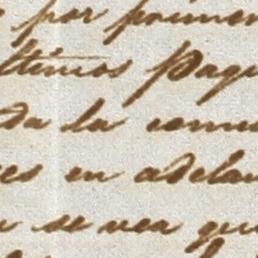 por primer
ltimos Pagu
da la comu
es en adelan
se vea que